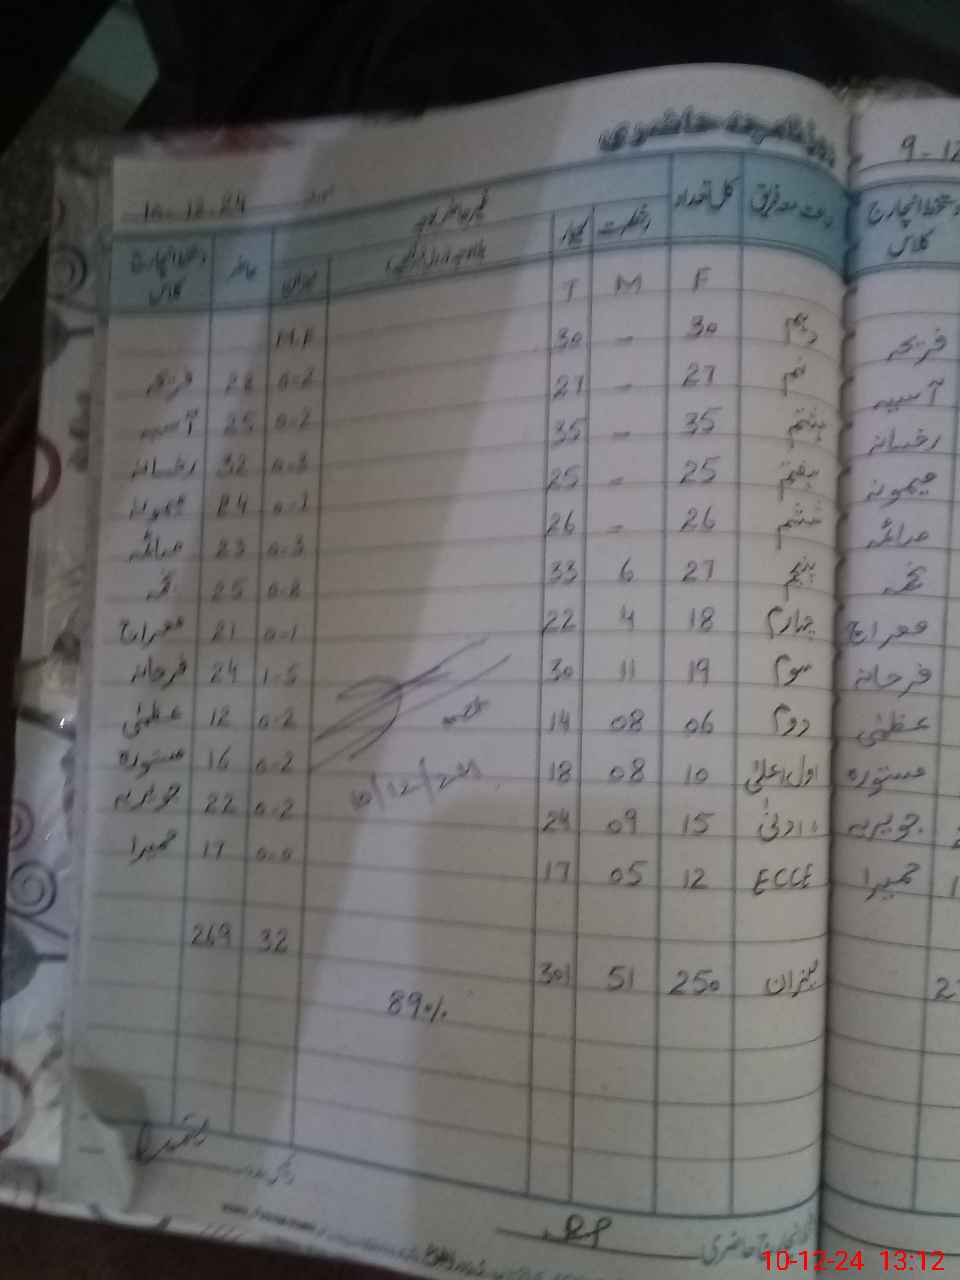 روزنامچہ حاضری
10-12-24
9-12
جماعت معہ فریق کل تعداد میزان حاضر دستخط انچارج کلاس
F M T M.F
دہم 30 - 30 0-2 28 فرتحہ
نہم 27 - 27 0-2 25 آسیہ
ہشتم 35 - 35 0-3 32 رخسانہ
ہفتم 25 - 25 0-1 24 میمونہ
ششم 26 - 26 0-3 23 صائمہ
پنجم 27 6 33 0-8 25
چہارم 18 4 22 0-1 21 معراج
سوم 19 11 30 1-5 24 فرحانہ
دوم 06 08 14 0-2 12 عظمیٰ
اول اعلیٰ 10 08 18 0-2 16 مستورہ
ادنیٰ 15 09 24 0-2 22 جویریہ
ECCE 12 05 17 0-0 17 حمیرا
میزان 250 51 301 32 269
89%
10/12/24
انچارج حاضری
دستخط انچارج کلاس
آسیہ
رخسانہ
میمونہ
صائمہ
معراج
فرحانہ
عظمیٰ
مستورہ
جویریہ
حمیرا
10-12-24 13:12